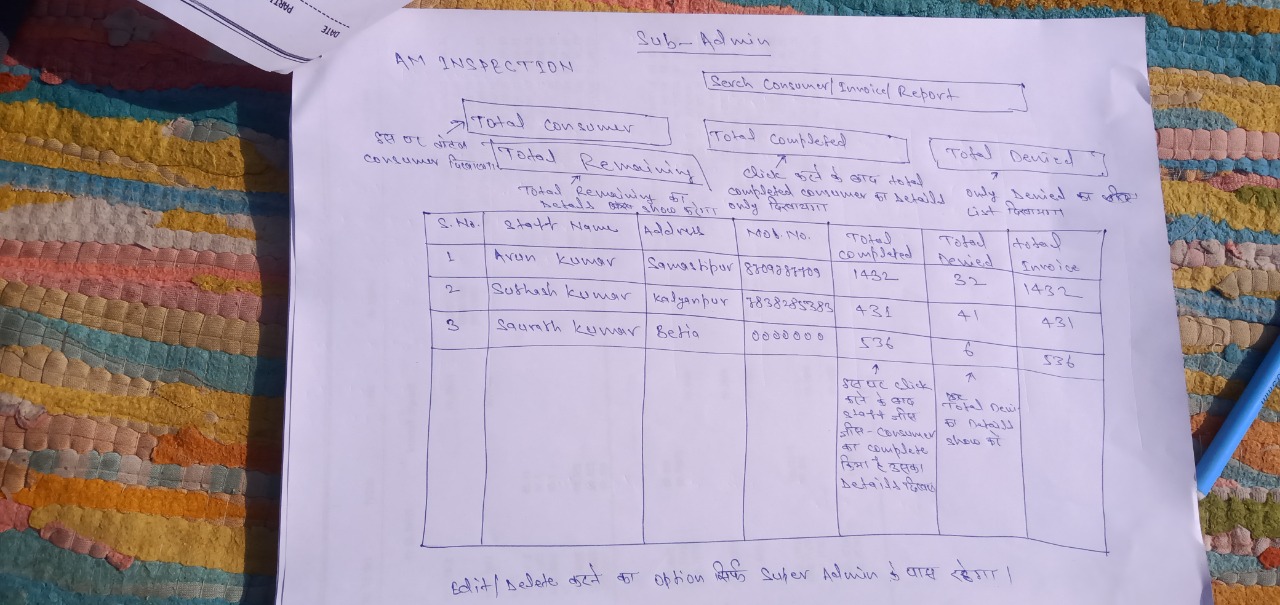 DATE
PART
Sub-Admin
AM INSPECTION
Serch Consumer/Invoice/Report
Total Consumer
Total Completed
Total Denied
इस पर
consumer
Total Remaining
Total Remaining का
Details show करेगा
click करने के बाद total
completed consumer का Details
only दिखायेगा
only Denied का
List दिखायेगा
S. No. Staff Name Address Mob. No. Total completed Total Denied total Invoice
1 Arun Kumar Samastipur 8709287709 1432 32 1432
2 Subhash Kumar Kalyanpur 7838285383 431 41 431
3 Saurabh Kumar Betia 0000000 536 6 536
इस पर click
करने के बाद
staff जीस
जीस-consumer
का complete
किया है उसका
Details
Total Deni
का Details
show करे
Edit/Delete करने का option सिर्फ Super Admin के पास रहेगा।